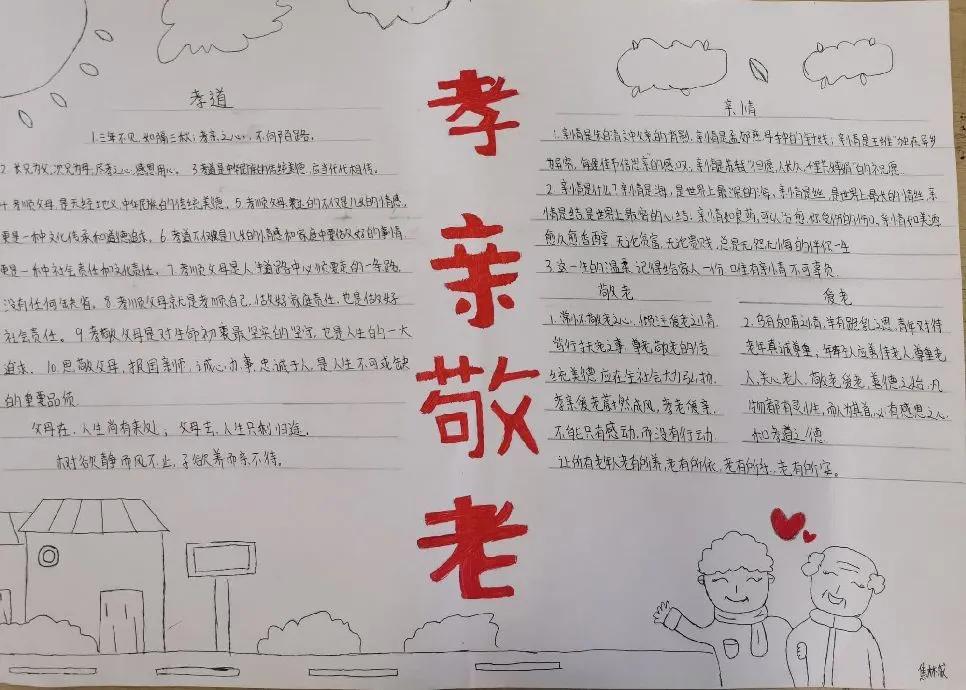 孝道
1.三年不见,如隔三秋;孝亲之心,不问陌路。
2.长兄为父,次兄为母,尽孝之心,感恩用心。3.孝道是中华民族的传统美德,应当代代相传。
4.孝顺父母,是天经地义,中华民族的传统美德。5.孝顺父母,教的不仅是儿女的情感,
更是一种文化传承和道德追求。6.孝道不仅被是儿女的情感和家庭中要做好的事情,
更是一种社会责任和文化责任。7.孝顺父母是人生道路中必须要走的一条路,
没有任何缺省。8.孝顺父母就是孝顺自己,做好家庭责任,也是做好
社会责任。9.孝敬父母是对生命初衷最坚实的坚守,也是人生的一大
追求。10.思敬父母,报国亲师,诚心办事,忠诚于人,是人生不可或缺
的重要品质
父母在,人生尚有来处;父母去,人生只剩归途。
树欲静而风不止,子欲养而亲不待。
孝
亲
敬
老
亲情
1.亲情是朱自清文中父亲的背影,亲情是孟郊慈母手中的针线;亲情是王维"独在异乡
为异客,每逢佳节倍思亲"的感叹,亲情是苏轼"但愿人长久,千里共婵娟"的祝愿
2.亲情是什么?亲情是海,是世界上最深的海,亲情是丝,是世界上最长的情丝,亲
情是结,是世界上最密的心结。亲情如良药,可以治愈你受伤的伤口,亲情如美酒
愈久愈香西醇,无论贫富,无论贵贱,总是无怨无悔的伴你一生
3.这一生的温柔,记得给家人一份,唯有亲情不可辜负
敬老
1.常怀敬老之心,倾注爱老之情
笃行扶老之事,尊老敬老的传
统美德应在全社会大力弘扬
孝亲爱老蔚然成风,孝老爱亲,
不能只有感动,而没有行动
爱老
2.乌有如甫之情,羊有跪乳之恩,青年对待
老年真诚尊重,年轻人应善待老人,尊重老
人,关心老人,敬老爱老,美德之始,凡
物都有灵性,而人为其首,必有感恩之心
和孝尊之德
让所有老年人老有所养,老有所依,老有所乐,老有所安。